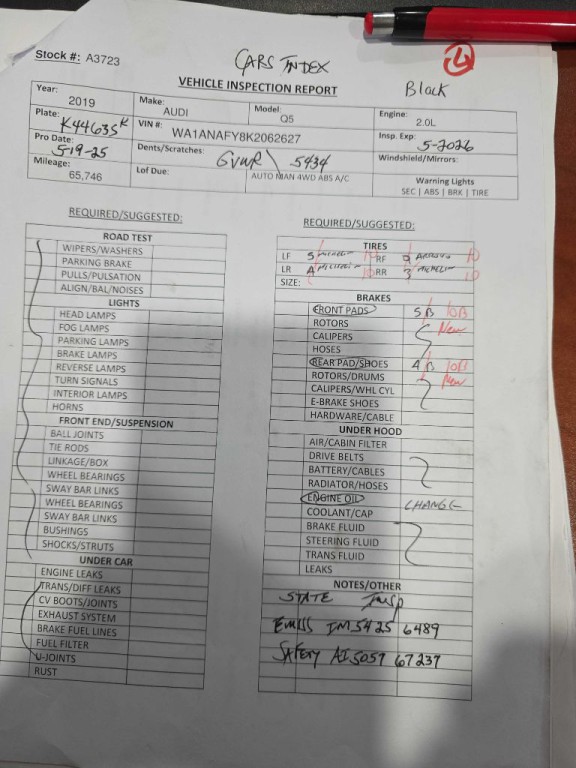 Stock #: A3723
CARS INDEX
VEHICLE INSPECTION REPORT
Black
Year: 2019 Make: AUDI Model: Q5 Engine: 2.0L
Plate: K44635K VIN #: WA1ANAFY8K2062627 Insp. Exp: 5-2026
Pro Date: 5-19-25 Dents/Scratches: GVWR 5434 Windshield/Mirrors:
Mileage: 65,746 Lof Due: AUTO MAN 4WD ABS A/C Warning Lights
SEC | ABS | BRK | TIRE
REQUIRED/SUGGESTED:
ROAD TEST
WIPERS/WASHERS
PARKING BRAKE
PULLS/PULSATION
ALIGN/BAL/NOISES
LIGHTS
HEAD LAMPS
FOG LAMPS
PARKING LAMPS
BRAKE LAMPS
REVERSE LAMPS
TURN SIGNALS
INTERIOR LAMPS
HORNS
FRONT END/SUSPENSION
BALL JOINTS
TIE RODS
LINKAGE/BOX
WHEEL BEARINGS
SWAY BAR LINKS
WHEEL BEARINGS
SWAY BAR LINKS
BUSHINGS
SHOCKS/STRUTS
UNDER CAR
ENGINE LEAKS
TRANS/DIFF LEAKS
CV BOOTS/JOINTS
EXHAUST SYSTEM
BRAKE FUEL LINES
FUEL FILTER
U-JOINTS
RUST
REQUIRED/SUGGESTED:
TIRES
LF 5 10 RF 9 10
LR 4 10 RR 3 10
SIZE:
BRAKES
FRONT PADS 5 B 10B
ROTORS New
CALIPERS
HOSES
REAR PAD/SHOES 4 B 10B
ROTORS/DRUMS New
CALIPERS/WHL CYL
E-BRAKE SHOES
HARDWARE/CABLE
UNDER HOOD
AIR/CABIN FILTER
DRIVE BELTS
BATTERY/CABLES
RADIATOR/HOSES
ENGINE OIL CHANGE
COOLANT/CAP
BRAKE FLUID
STEERING FLUID
TRANS FLUID
LEAKS
NOTES/OTHER
STATE Insp
Emiss IM5425 6489
SAFETY AI5057 67237